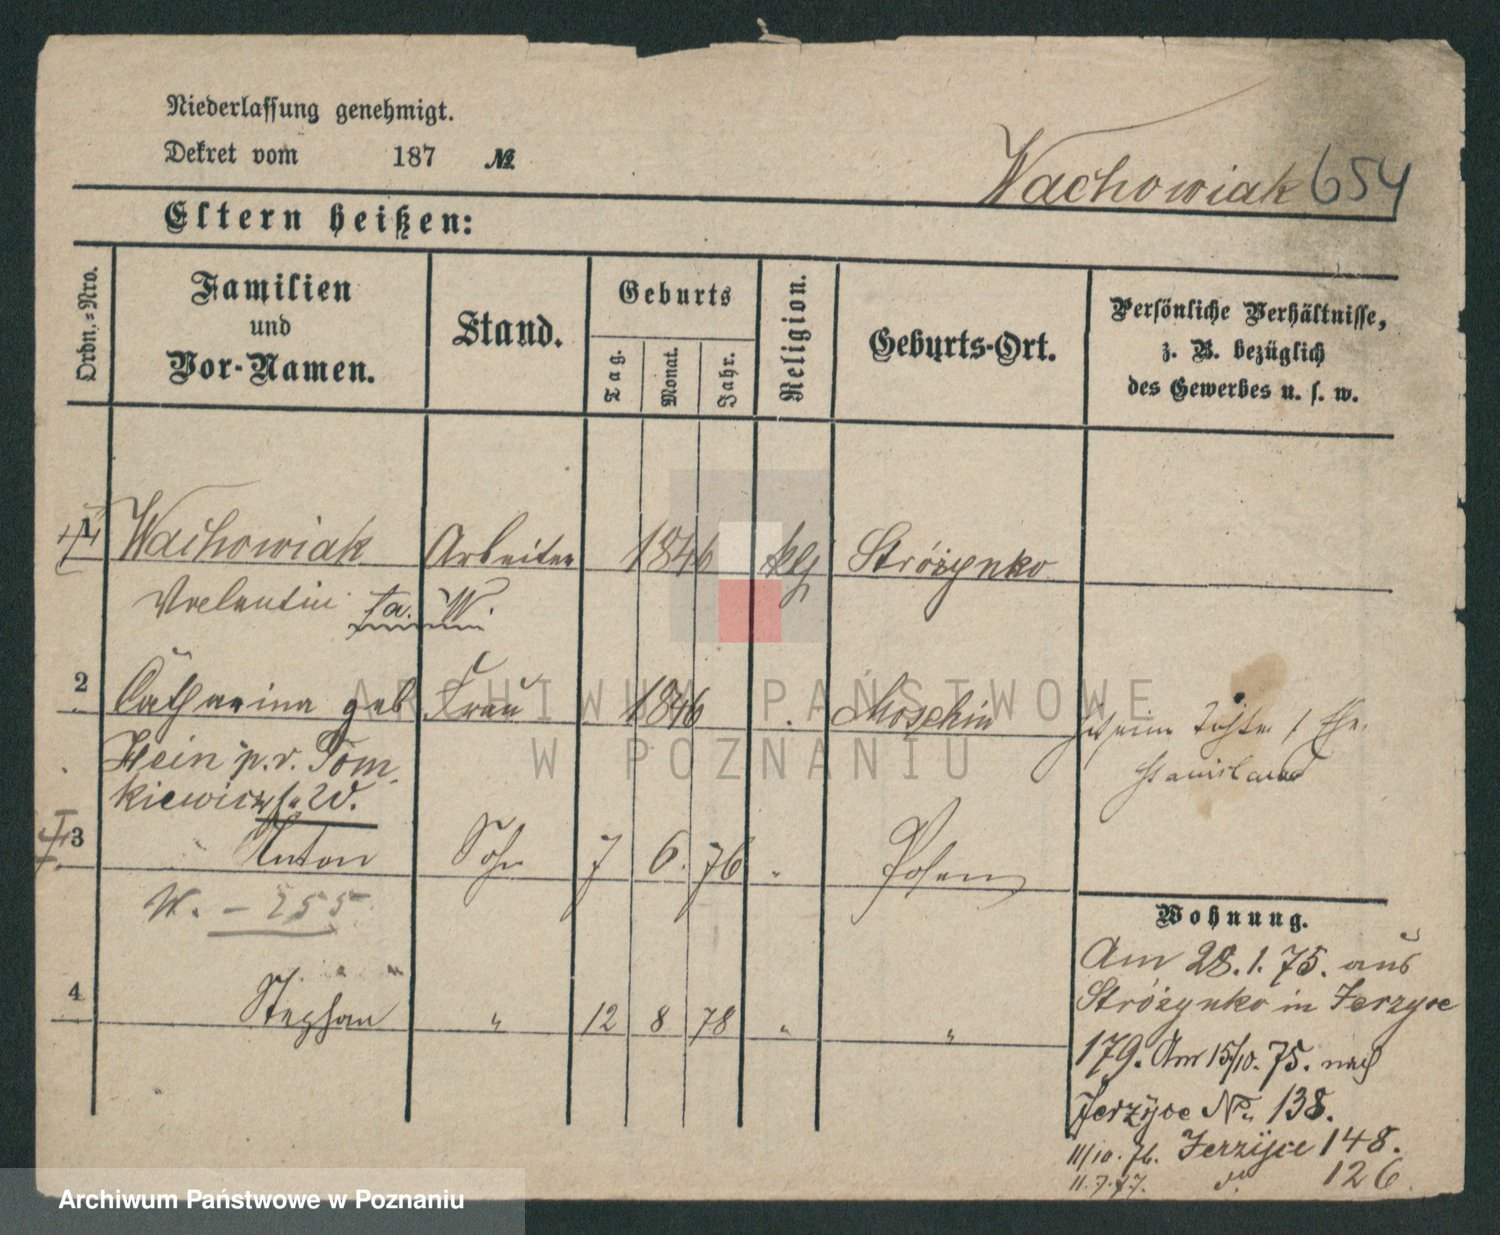 Niederlassung genehmigt.
Dekret vom 187 №
Wachowiak 654
Eltern heißen:
Ordn.=Nro.
Familien
und
Vor-Namen.
Stand.
Geburts
Tag.
Monat.
Jahr.
Religion.
Geburts-Ort.
Persönliche Verhältnisse,
z. B. bezüglich
des Gewerbes u. s. w.
1 Wachowiak Arbeiter 1846 klg Stróżynko
Valentin fa. W.
2 Catharina geb Frau 1846 " Moschin
Hein p.v. Tom-
kiewicz f. W.
Stanislaus
3 Anton Sohn 7 6. 76 " Posen
W. - 255
4 Stephan " 12 8 78 " "
Wohnung.
Am 28.1.75. aus
Stróżynko in Jerzyce
179. Am 15/10.75. nach
Jerzyce No. 138.
11/10.76. Jerzyce 148.
11.7.77. do. 126.
ARCHIWUM PAŃSTWOWE
W POZNANIU
Archiwum Państwowe w Poznaniu